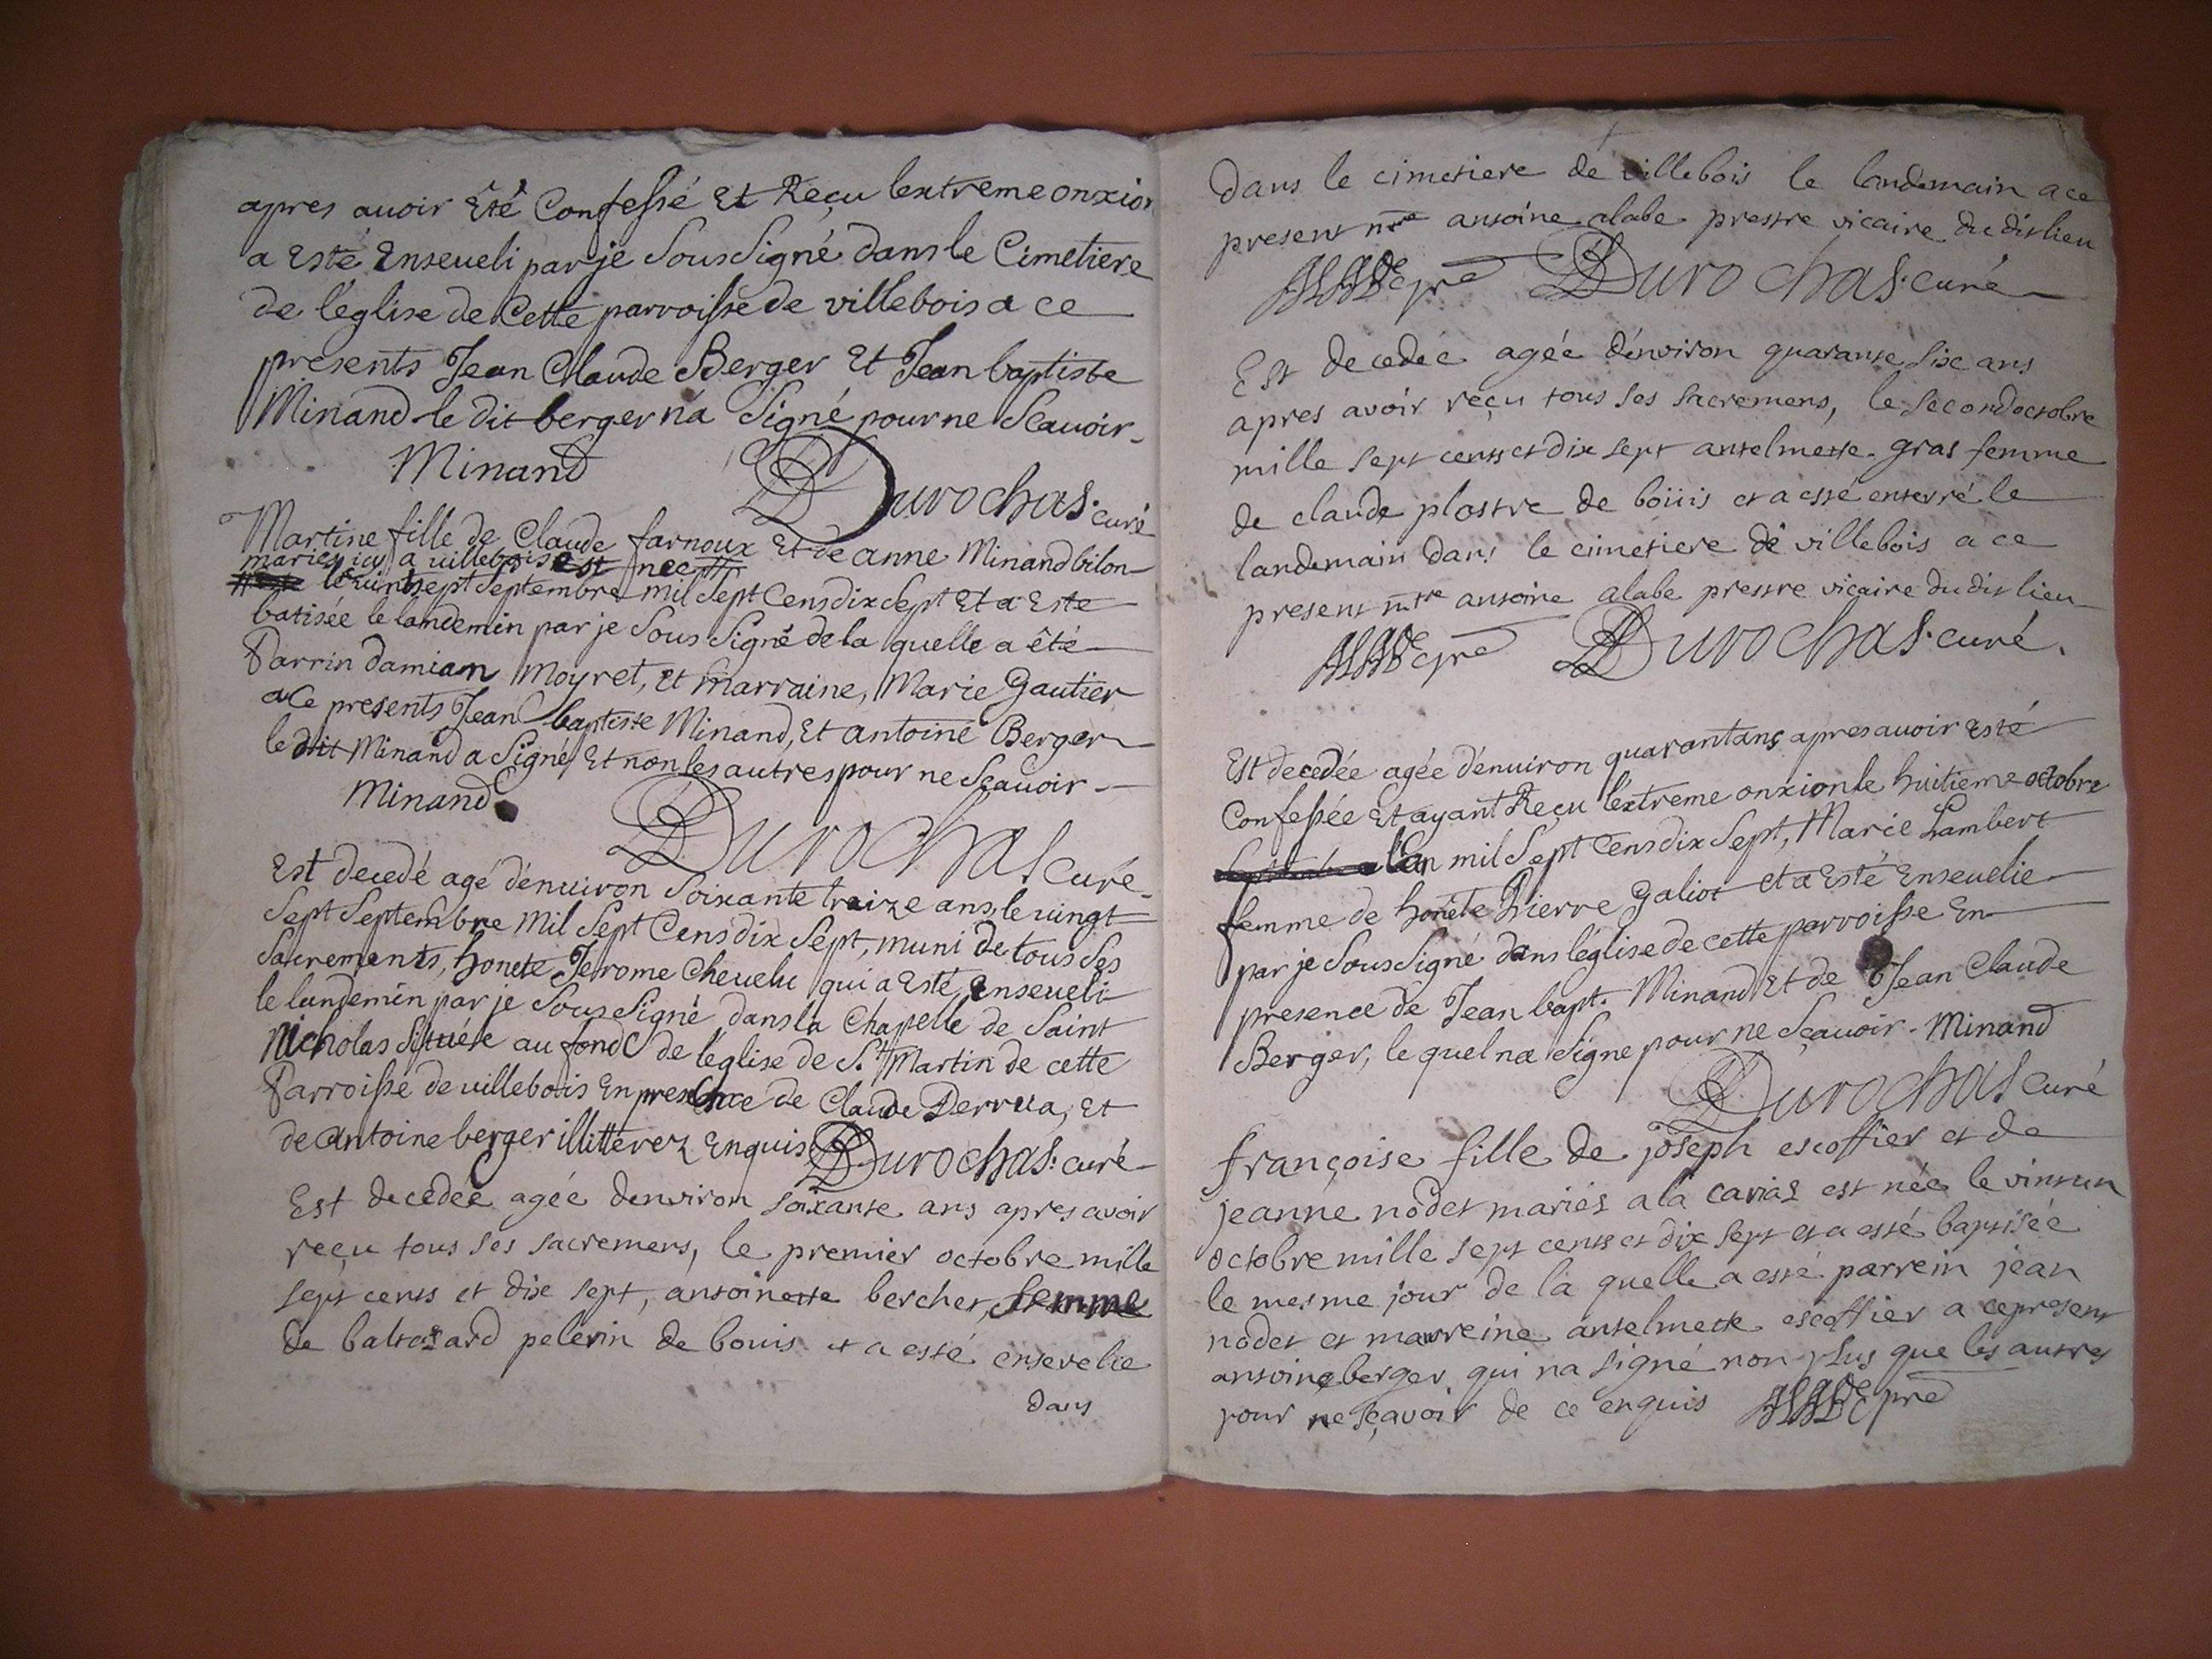 apres auoir Eté Confessé Et Reçu lextreme onxion
a Esté Enseueli par je Sous Signé dans le Cimetiere
de l'église de Cette parroisse de villebois a ce
presents Jean Claude Berger Et Jean baptiste
Minand le dit berger n'a Signé pour ne Scauoir
Minand Durochas curé
Martine fille de Claude farnoux Et de anne Minand bilon
mariés icy a villebois est née
le vint sept Septembre mil Sept Cens dix Sept Et a Este
batisée le landemin par je Sous Signé de la quelle a été
Parrin damian Moyret, et marraine, Marie Gautier
a Ce presents Jean baptiste Minand, Et antoine Berger
le dit Minand a Signé Et non les autres pour ne Scauoir
Minand
Durochas Curé
Est decedé agé d'enuiron Soixante traize ans, le vingt
Sept Septembre Mil Sept Cens dix Sept, muni de tous Ses
Sacrements, honete Jerome Cheuelu qui a Esté enseueli
le landemin par je Sous Signé dans la Chapelle de Saint
Nicholas Situéee au fond de l'église de St. Martin de cette
Parroisse de villebois En presence de Claude Derrua, Et
de antoine berger illitterez Enquis Durochas curé
Est decedée agée denviron soixante ans apres avoir
reçu tous ses sacremens, le premier octobre mille
sept cents et dix sept, antoinette bercher, femme
de baltazard pelerin de bouis et a esté ensevelie
dans
dans le cimetiere de villebois le landemain a ce
present mre antoine alabe prestre vicaire du dit lieu
pre Durochas curé
Est decedée agée d'environ quarante six ans
apres avoir reçu tous ses sacremens, le second octobre
mille sept cents et dix sept antelmette gras femme
de claude plostre de boüis et a esté enterré le
landemain dans le cimetiere de villebois a ce
present mtre antoine alabe prestre vicaire du dit lieu
pre Durochas curé.
Est decedée agée d'enuiron quarantans apres auoir Esté
Confessée Et ayant Reçu l'extreme onxion le huitieme octobre
l'an mil Sept Cens dix Sept, Marie Lambert
femme de honête Pierre Galiot et a Esté Enseuelie
par je Sous Signé dans l'église de cette parroisse En
presence de Jean bapt. Minand Et de Jean Claude
Berger, le quel na Signe pour ne Sçauoir. Minand
Durochas Curé
françoise fille de joseph escoffier et de
jeanne nodet mariés a la cavias est née le vint un
octobre mille sept cents et dix sept et a esté baptisée
le mesme jour de la quelle a esté parrein jean
nodet et marreine antelmette escoffier a ce present
antoine berger qui na signé non plus que les autres
pour ne sçavoir de ce enquis pre